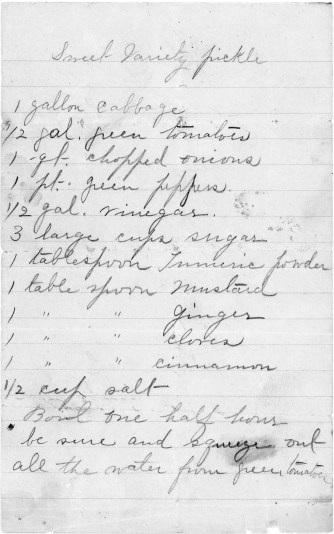 Sweet Variety pickle
1 gallon cabbage
1/2 gal. green tomatoes
1 qt. chopped onions
1 pt. green peppers.
1/2 gal. vinegar.
3 large cups sugar
1 tablespoon Tumeric powder
1 table spoon mustard
1 " " ginger
1 " " cloves
1 " " cinnamon
1/2 cup salt
Boil one half hour
be sure and squeeze out
all the water from green tomatoes